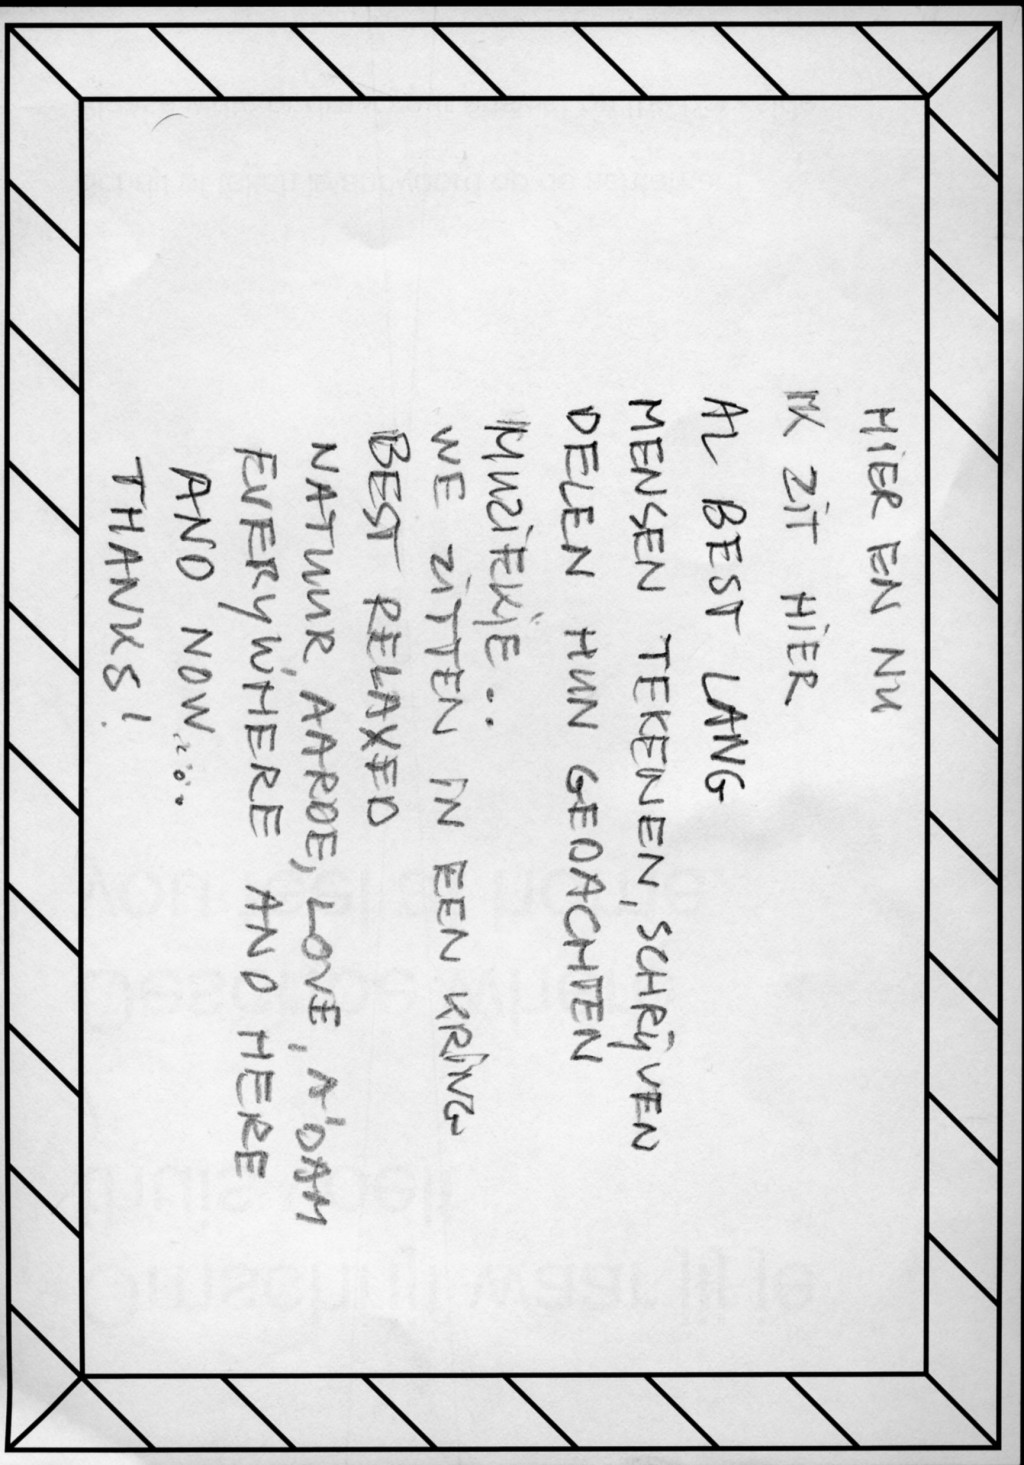 HIER EN NU
IK ZIT HIER
AL BEST LANG
MENSEN TEKENEN, SCHRIJVEN
DELEN HUN GEDACHTEN
MUZIEKJE..
WE ZITTEN IN EEN KRING
BEST RELAXED
NATUUR AARDE, LOVE, A'DAM
EVERYWHERE AND HERE
AND NOW.....
THANKS!